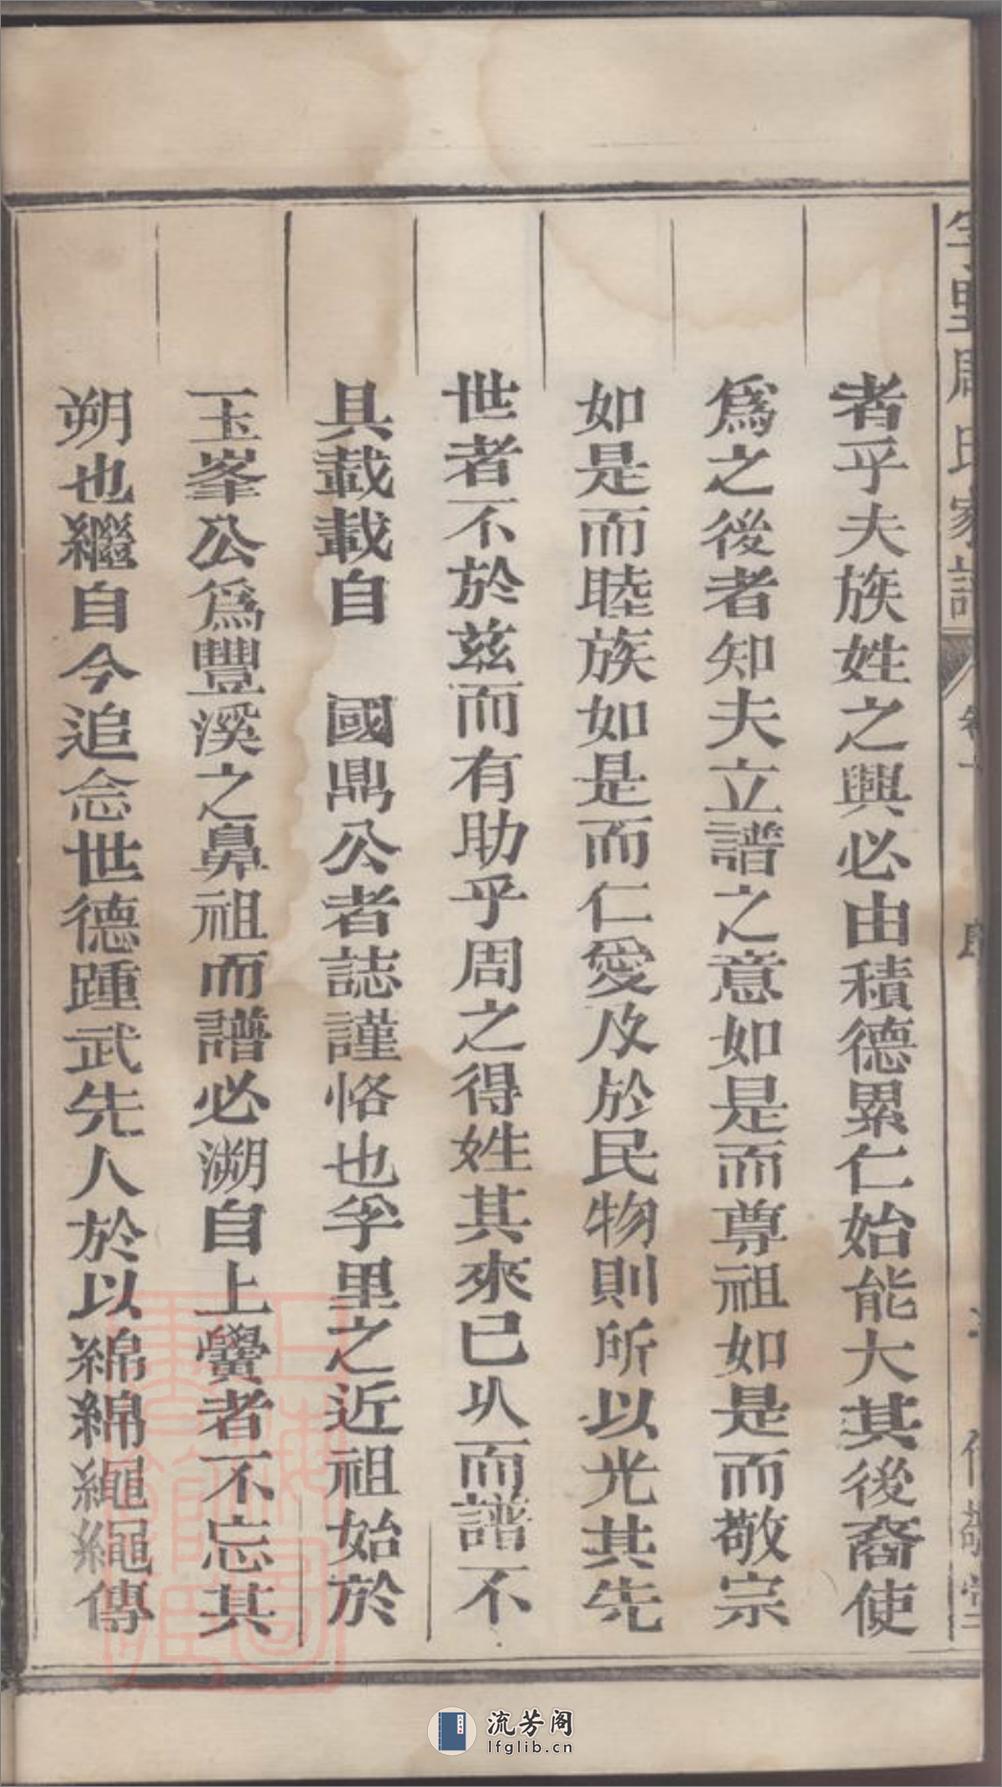 者乎夫族姓之興必由積德累仁始能大其後裔使
爲之後者知夫立譜之意如是而尊祖如是而敬宗
如是而睦族如是而仁愛及於民物則所以光其先
世者不於茲而有助乎周之得姓其來已久而譜不
具載載自　國鼎公者誌謹恪也孚里之近祖始於
玉峯公爲豐溪之鼻祖而譜必溯自上黌者不忘其
朔也繼自今追念世德踵武先人於以綿綿繩繩傳
上海圖書館藏
流芳阁
lfglib.cn